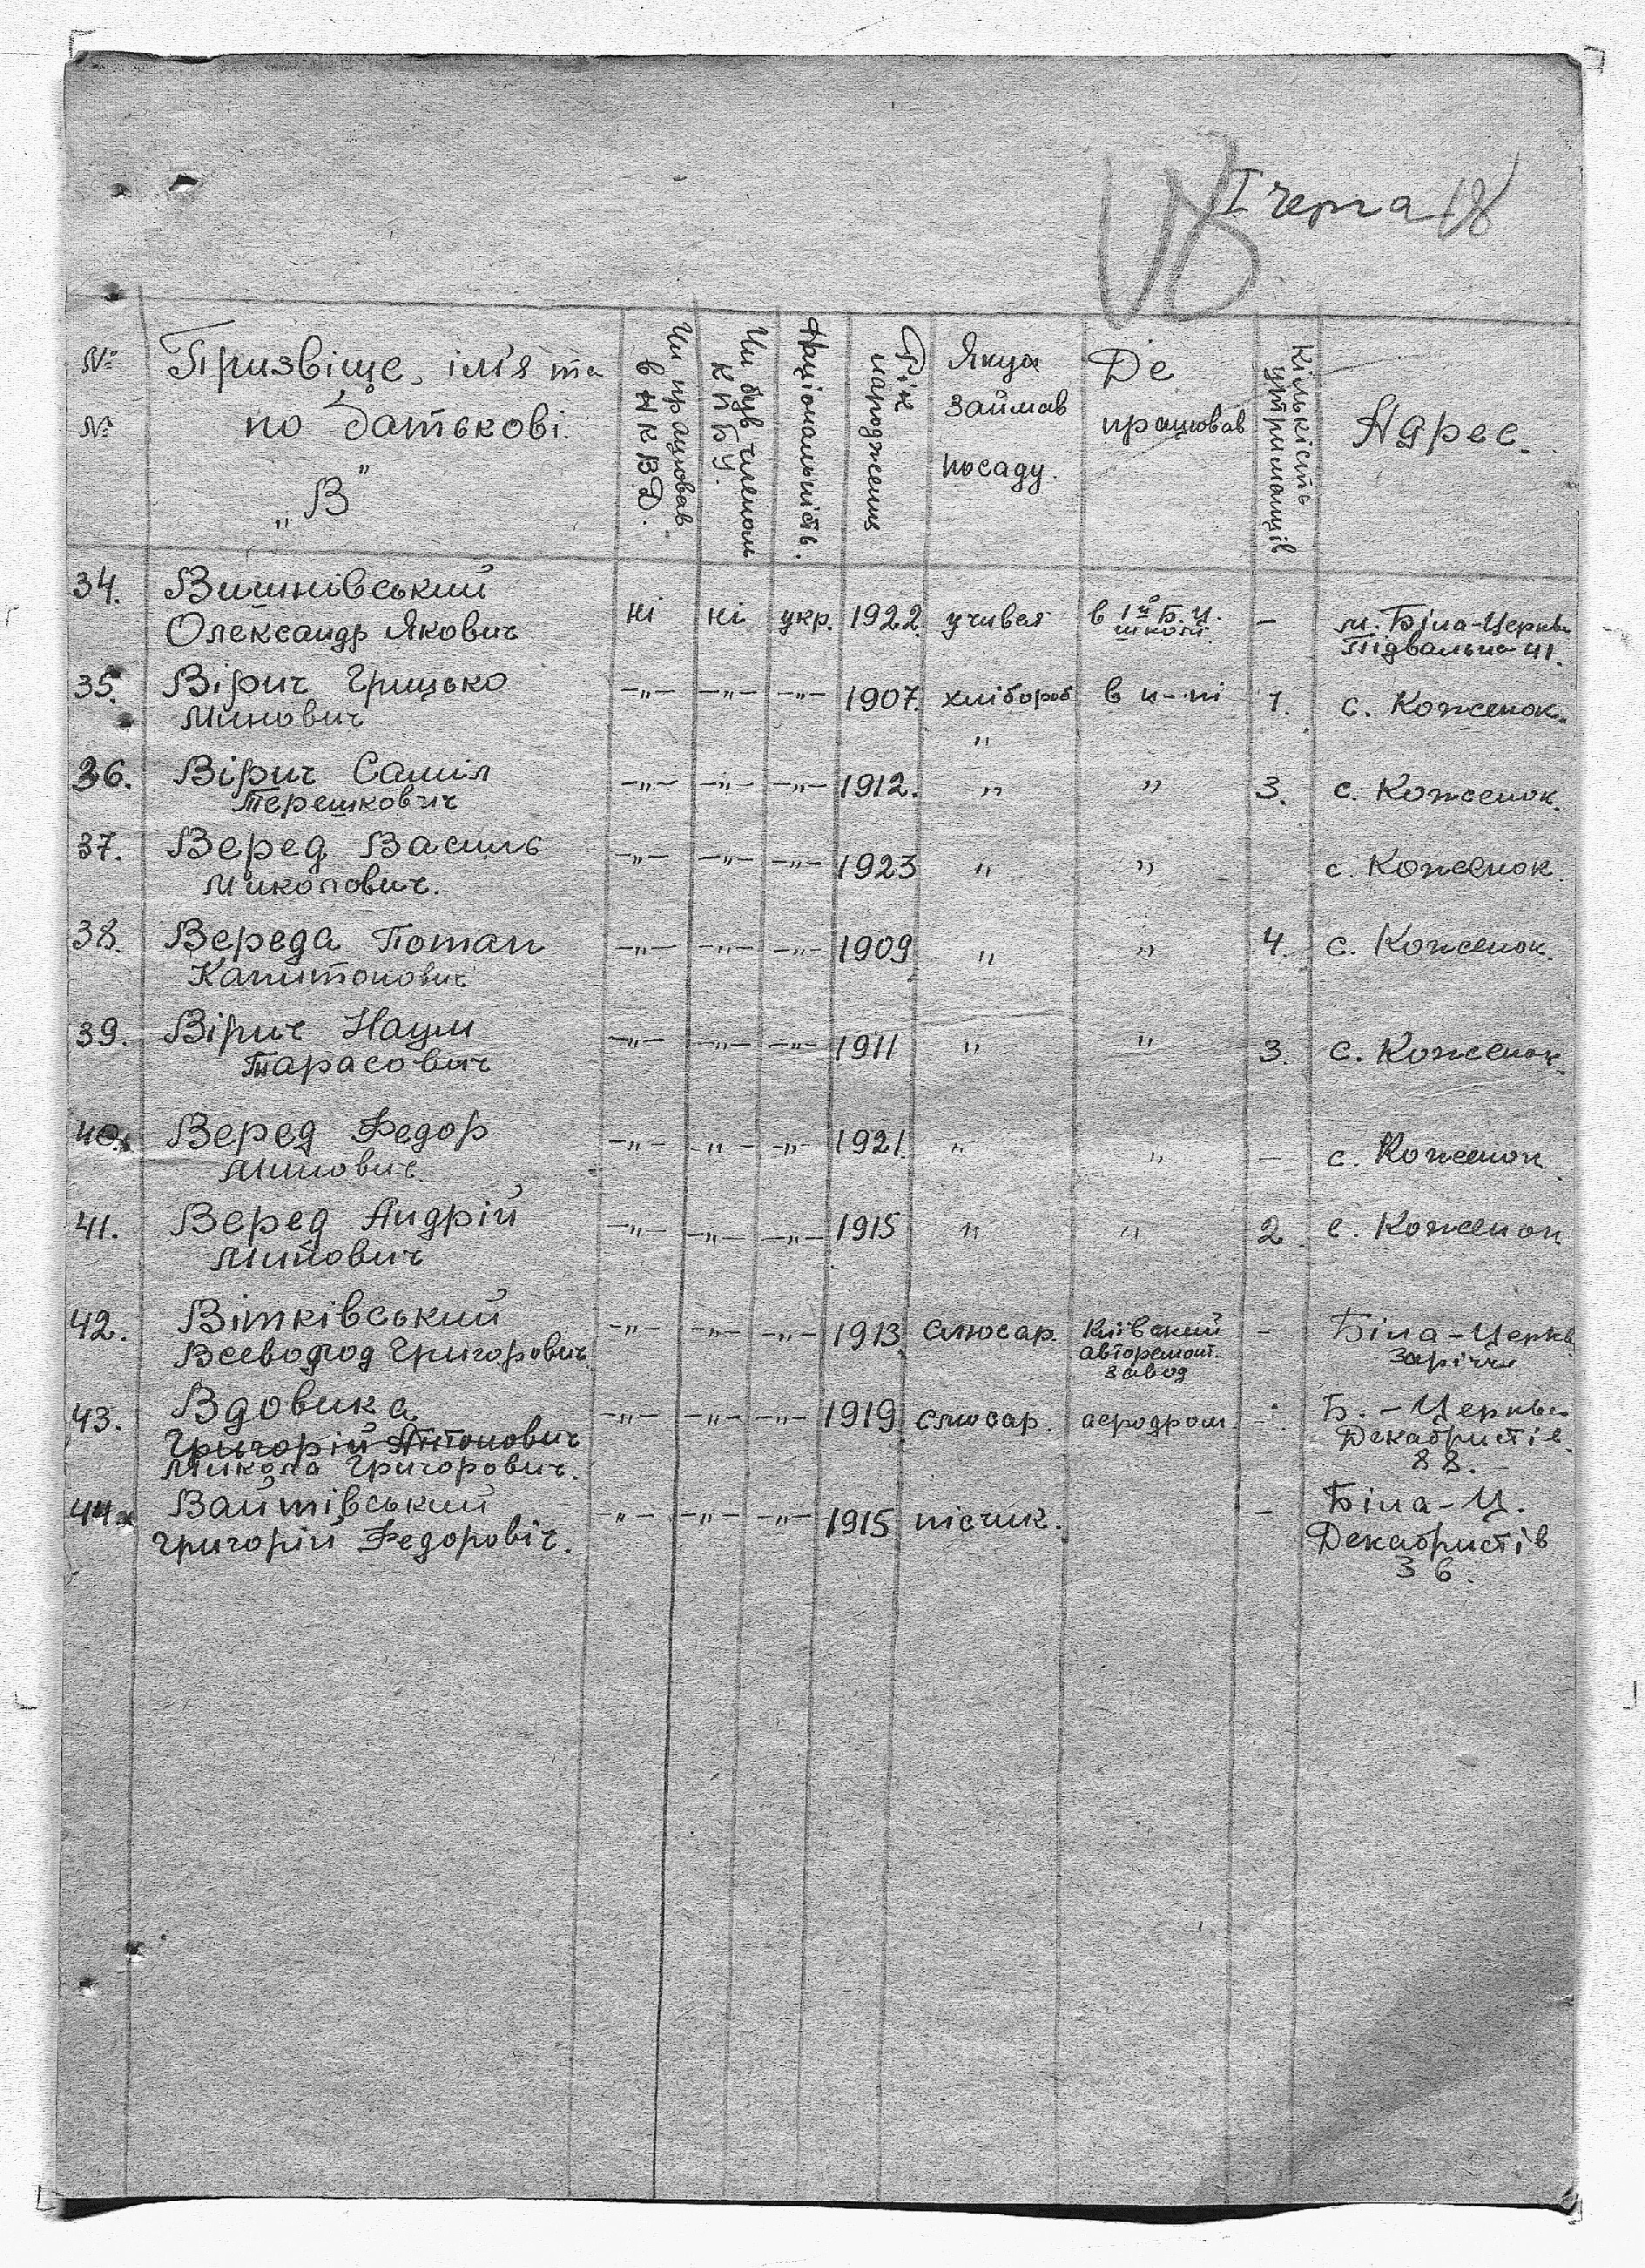 В І черга 18
№ №
Призвіще, ім'я та по батькові. „В"
Чи працював в НКВД.
Чи був членом КПБУ.
Національність.
Рік народження
Якуя займав посаду.
Де працював
Кількість утриманців
Адрес.
34. Вишнівський Олександр Якович ні ні укр. 1922 учився в 1й Б.Ц. школі. – м. Біла-Церква Підвальна 41.
35. Вірич Грицько Минович –„– –„– –„– 1907. хлібороб в к-пі 1. с. Коженок.
36. Вірич Саміл Терешкович –„– –„– –„– 1912. „ „ 3. с. Коженок.
37. Веред Василь Миколович. –„– –„– –„– 1923 „ „ с. Коженок.
38. Вереда Потап Капитонович –„– –„– –„– 1909 „ „ 4. с. Коженок.
39. Вірич Наум Тарасович –„– –„– –„– 1911 „ „ 3. с. Коженок.
40. Веред Федор Минович –„– –„– –„– 1921. „ „ – с. Коженок
41. Веред Андрій Минович –„– –„– –„– 1915 „ „ 2. с. Коженок
42. Вітківський Всеволод Григорович –„– –„– –„– 1913 слюсар. Київский авторемонт. завод – Біла-Церква Заріччя
43. Вдовика Григорій Антонович Микола Григорович. –„– –„– –„– 1919 слюсар. аеродром. – Б.-Церква Декабристів 88.
44. Вайтівський Григорій Федоровіч. –„– –„– –„– 1915 пісчик. – Біла-Ц. Декабристів 36.